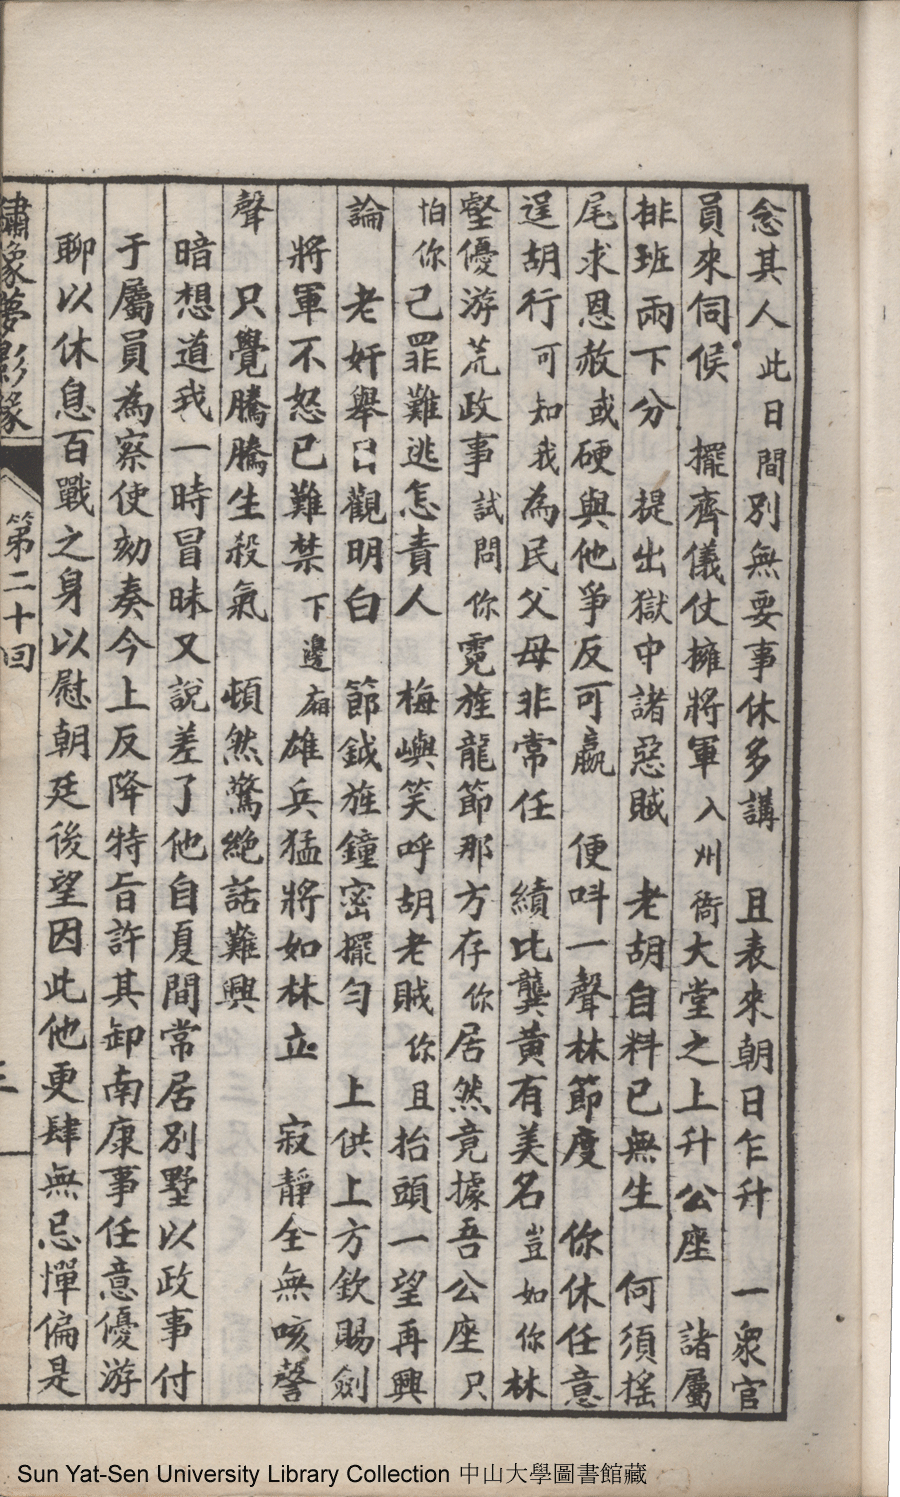 念其人　此日間別無要事休多講　且表來朝日乍升　一衆官
員來伺候　擺齊儀仗擁將軍　入州衙大堂之上升公座　諸屬
排班兩下分　提出獄中諸惡賊　老胡自料已無生　何須搖
尾求恩赦　或硬與他爭反可贏　便呌一聲林節度　你休任意
逞胡行　可知我為民父母非常任　績比龔黄有美名　豈如你林
壑優游荒政事　試問你霓旌龍節那方存　你居然竟據吾公座　只
怕你己罪難逃怎責人　梅嶼笑呼胡老賊　你且抬頭一望再興
論　老奸舉目觀明白　節鉞旌鐘密擺勻　上供上方欽賜劍
將軍不怒已難禁　下邊廂雄兵猛將如林立　寂靜全無咳謦
聲　只覺騰騰生殺氣　頓然驚絶話難興
暗想道我一時冒昧又說差了他自夏間常居別墅以政事付
于屬員為察使劾奏今上反降特旨許其卸南康事任意優游
聊以休息百戰之身以慰朝廷後望因此他更肆無忌憚偏是
繡像夢影緣　第二十回
Sun Yat-Sen University Library Collection 中山大學圖書館藏